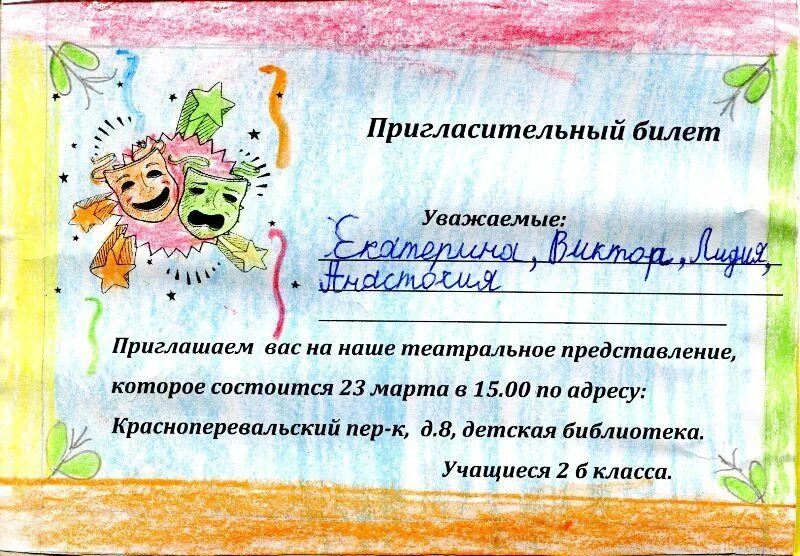 Пригласительный билет
Уважаемые:
Екатерина, Виктор, Лидия,
Анастасия
Приглашаем вас на наше театральное представление,
которое состоится 23 марта в 15.00 по адресу:
Красноперевальский пер-к, д.8, детская библиотека.
Учащиеся 2 б класса.